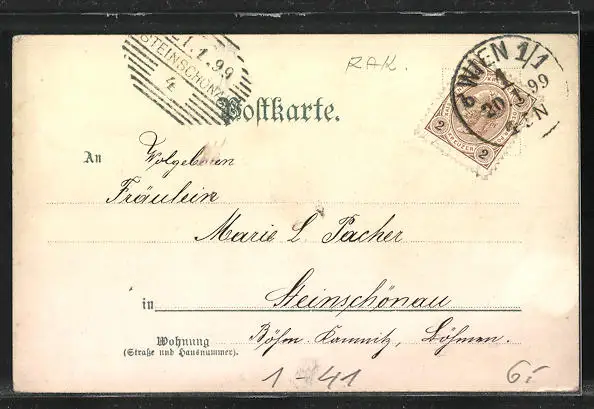 21.1.99
STEINSCHÖNAU
4
RAK.
WIEN 1/1
20 1.99
2 KREUZER 2
Postkarte.
An Wolgeboren
Fräulein
Marie L. Pacher
in Steinschönau
Wohnung Böhm. Kamnitz, Böhmen.
(Straße und Hausnummer).
1-41
6:-